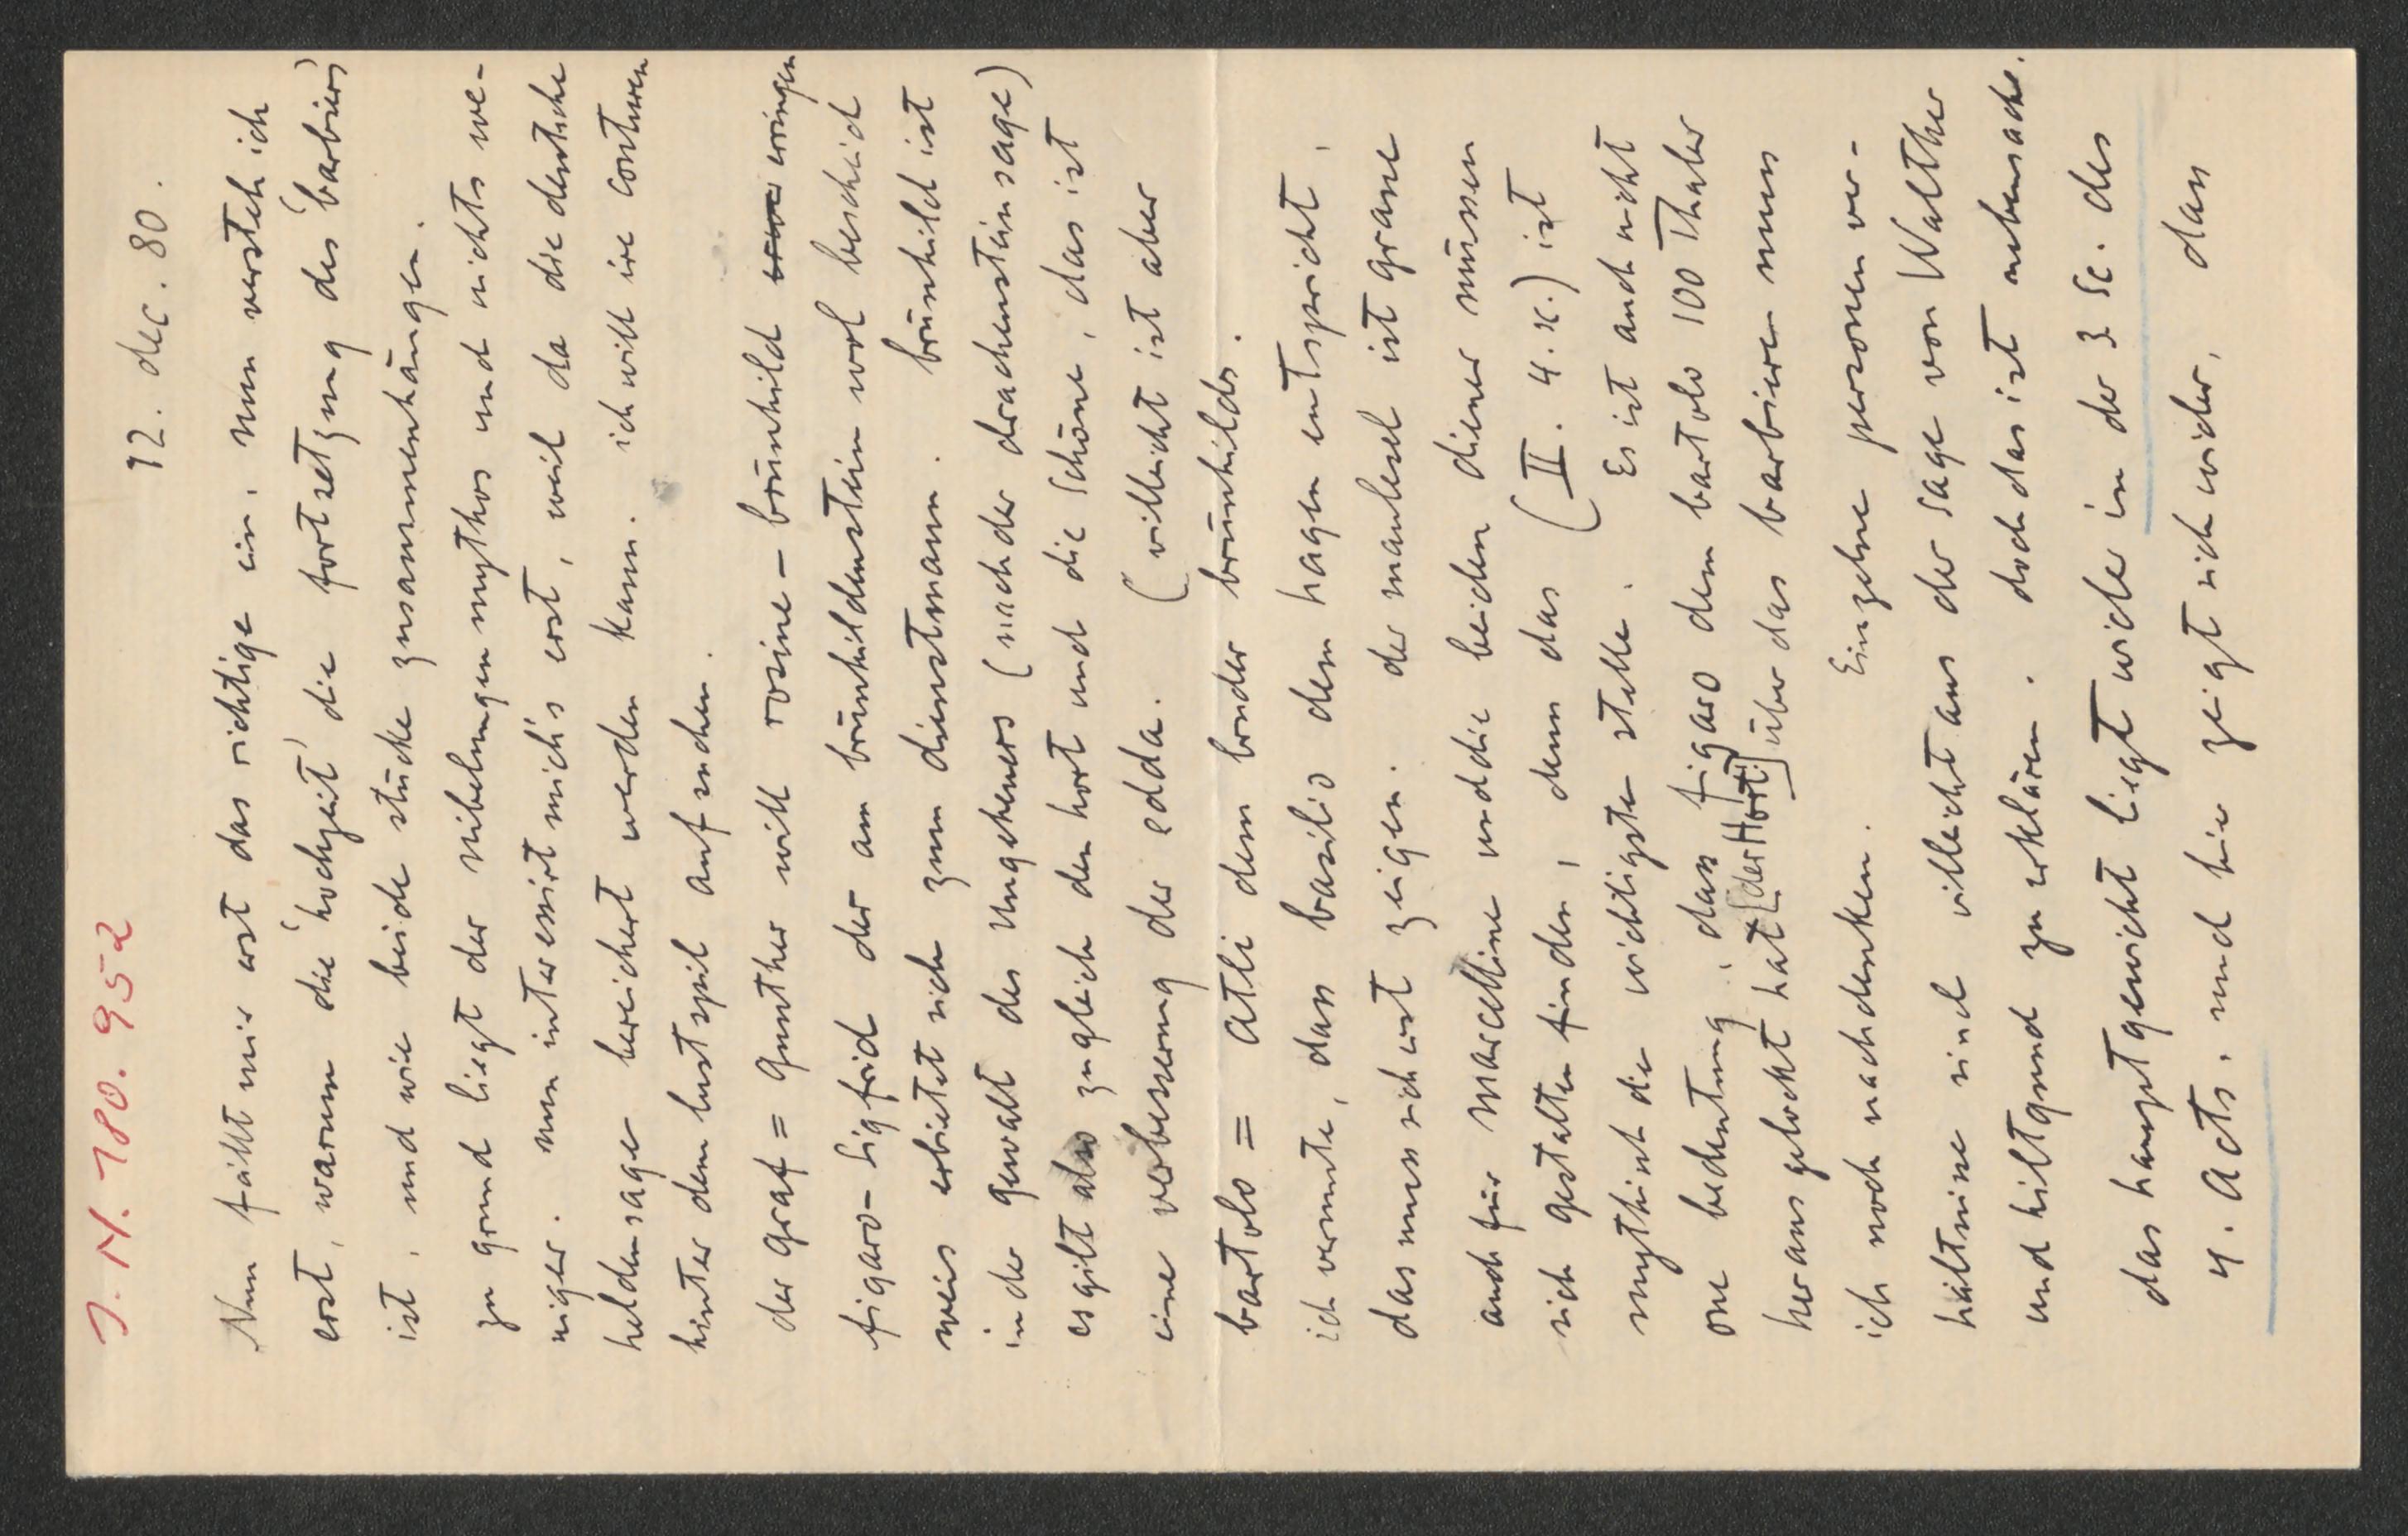 J. N. 180.952
12. dec. 80.
Nun fällt mir erst das richtige ein. nun versteh ich
erst, warum die 'hochzeit' die fortsetzung des 'barbiers'
ist, und wie beide stücke zusammenhängen.
zu grund liegt der nibelungenmythos und nichts we-
niger. nun interessirt mich's erst, weil da die deutsche
heldensage bereichert werden kann. ich will ire conturen
hinter dem lustspil aufsuchen.
der graf = gunther will rosine – brünhild erringen
figaro – sigfrid der am brünhildenstein wol bescheid
weis erbietet sich zum dienstmann. brünhild ist
in der gewalt des ungeheuers (nach der drachensteinsage)
es gilt also zugleich den hort und die schöne, das ist
eine verbesserung der edda. (villeicht ist aber
bartolo = atli dem bruder brünhilds.
ich vermute, dass basilio dem hagen entspricht,
das muss sich erst zeigen. der maulesel ist grane
auch für marcelline und die beiden diener müssen
sich gestalten finden, denn das (II. 4. x.) ist
mythisch die wichtigste stelle. Es ist auch nicht
one bedeutung, dass figaro dem bartolo 100 Thaler
herausgelockt hat [der Hort!] über das barbieren muss
ich noch nachdenken. Einzelne personenver-
hältnisse sind villeicht aus der sage von Walther
und hiltgund zu erklären. doch das ist nebensache.
das hauptgewicht liegt wider in der 3 Sc. des
4. Acts, und hie zeigt sich wider, dass